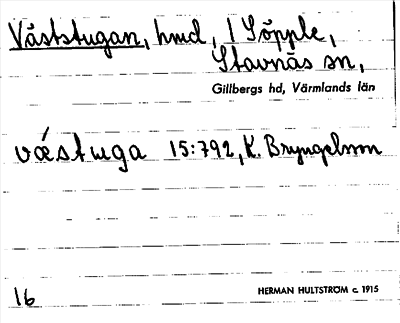 Väststugan, hmd, 1 Söpple,
Stavnäs sn,
Gillbergs hd, Värmlands län
væ´stuga 15:792, K. Bryngelsson
16
HERMAN HULTSTRÖM c. 1915